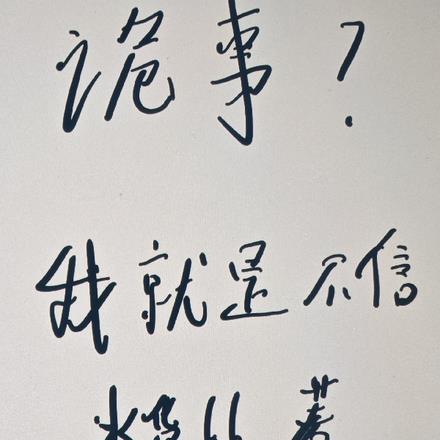 诡事？
我就是不信